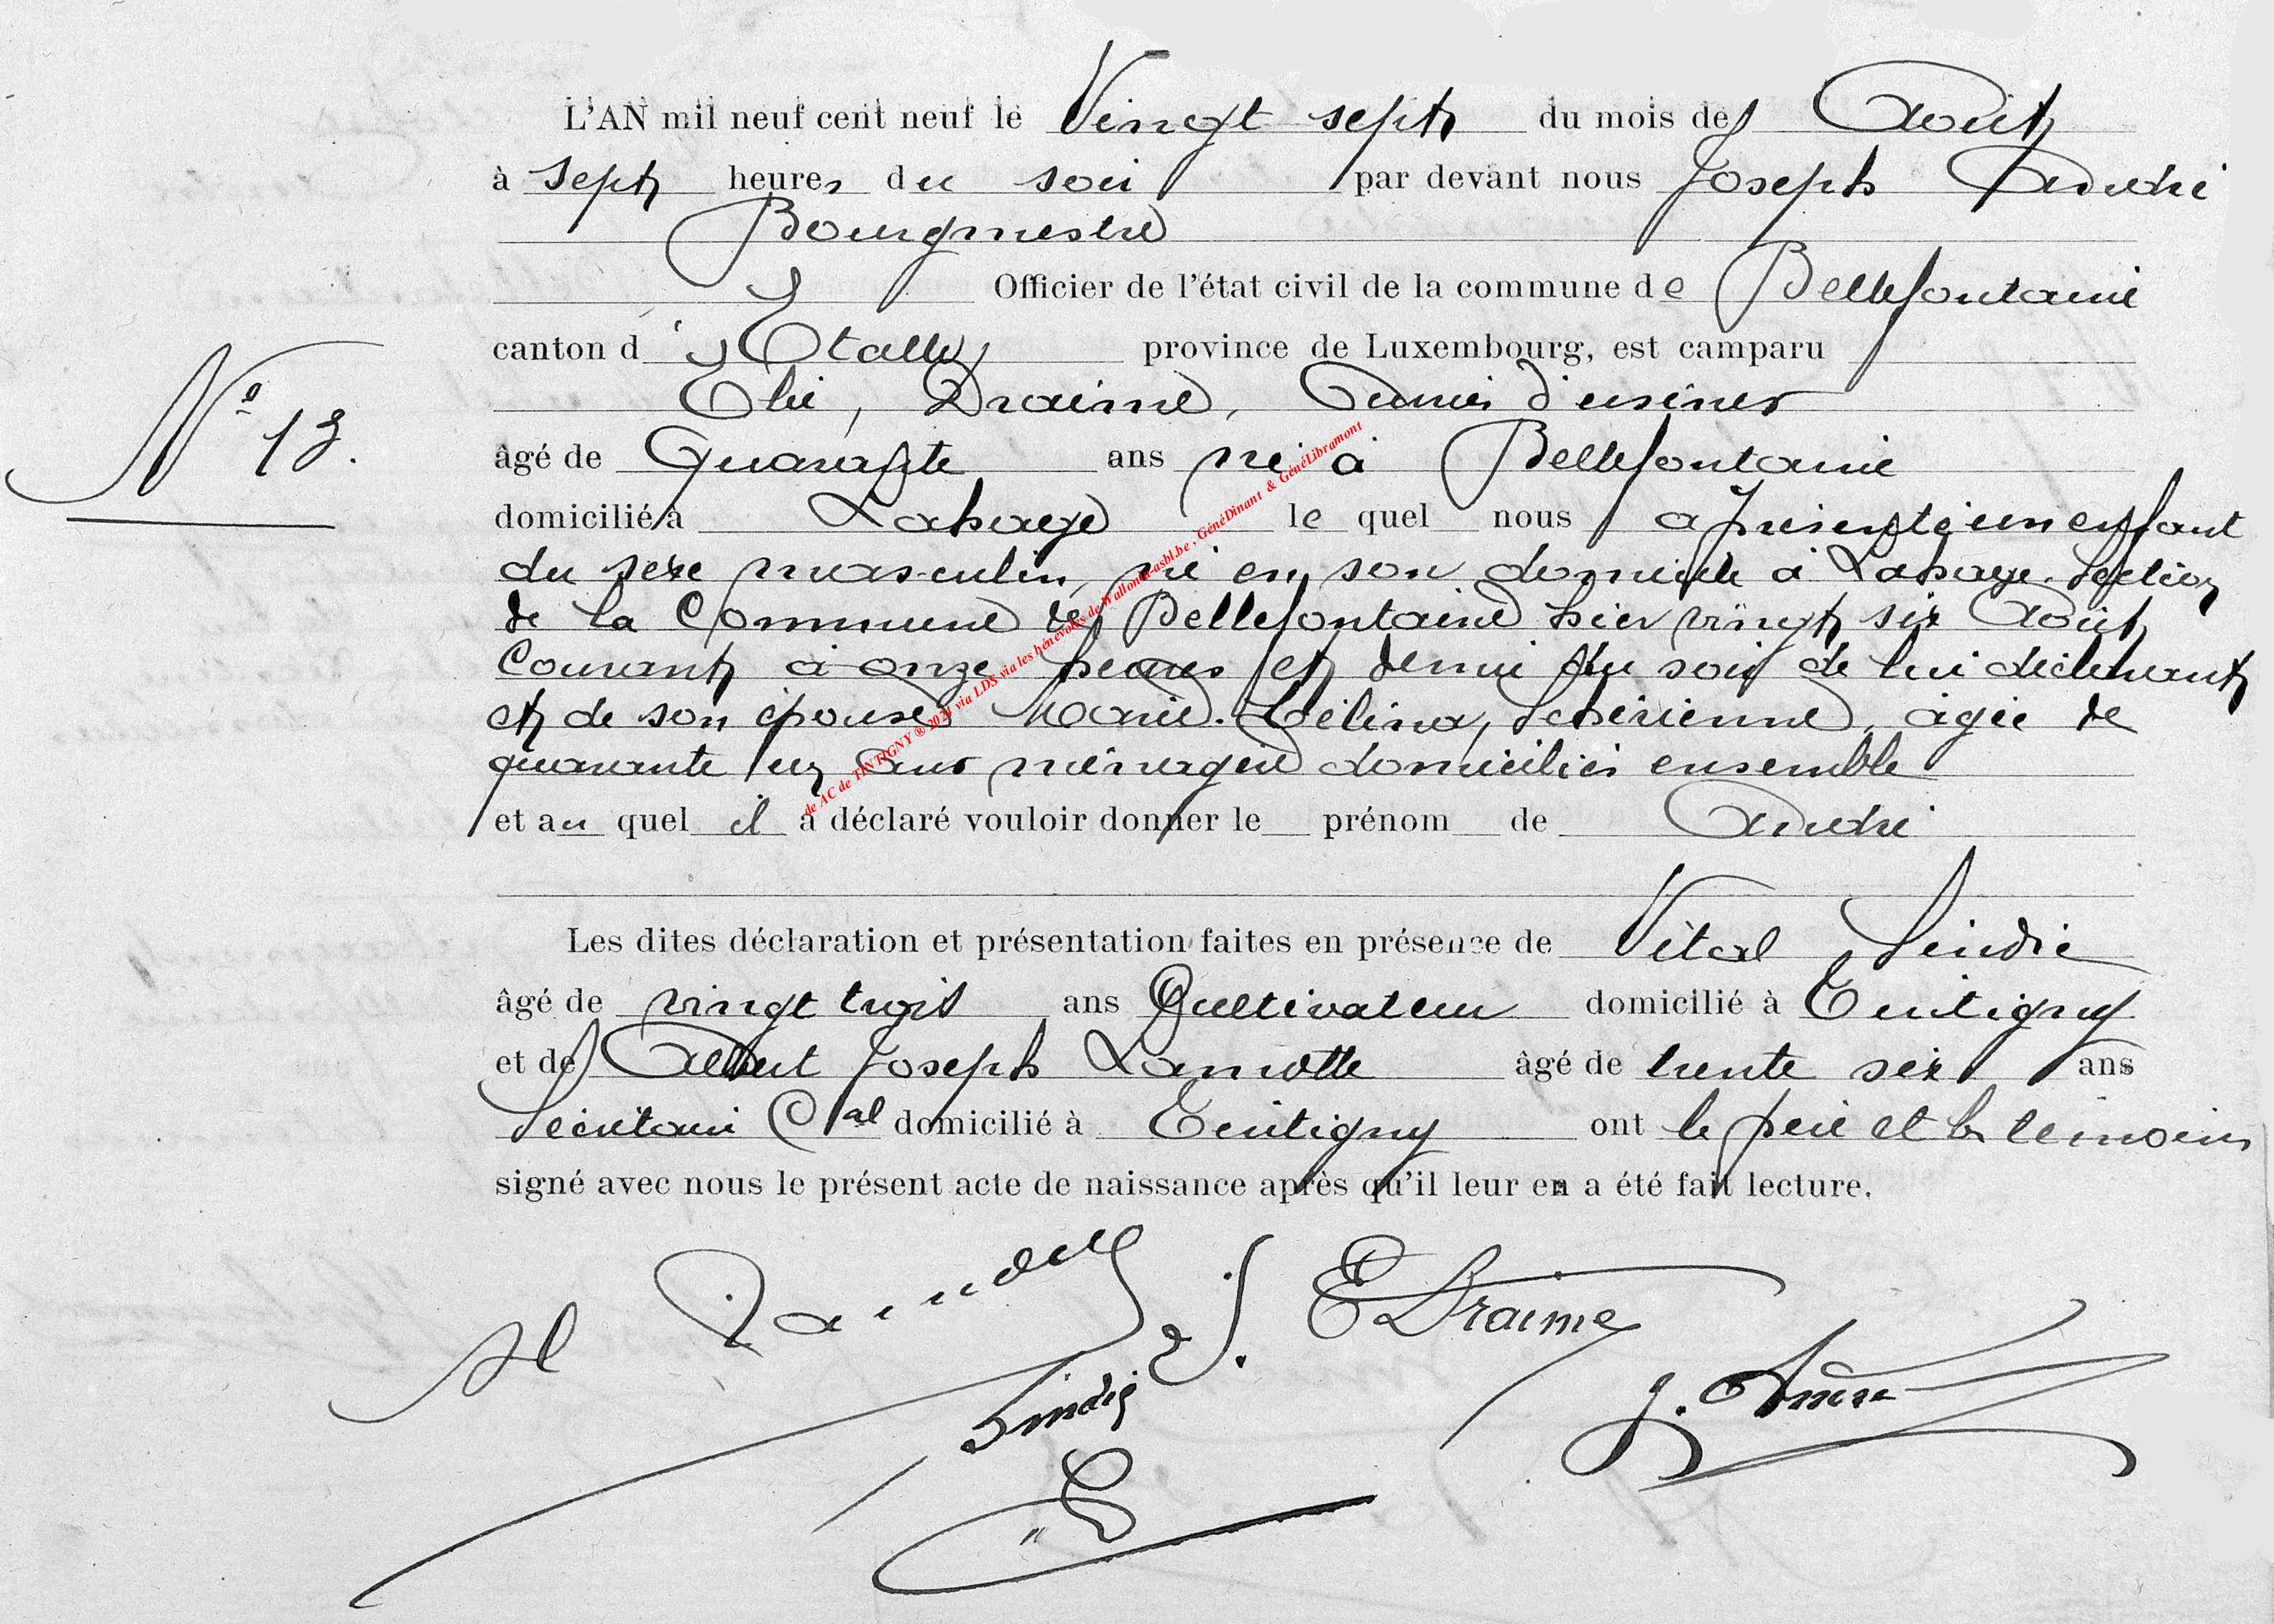 L'AN mil neuf cent neuf le Vingt sept du mois de Août
à sept heures du soir par devant nous Joseph André
Bourgmestre
Officier de l'état civil de la commune de Bellefontaine
canton d'Etalle province de Luxembourg, est camparu
Elie, Draime, Ouvrier d'usines
N° 13.
âgé de Quarante ans né à Bellefontaine
domicilié à Lahage le quel nous a présenté un enfant
du sexe masculin, né en son domicile à Lahage Section
de la Commune de Bellefontaine hier vingt six Août
Courant à onze heures et demi du soir de lui déclarant
et de son épouse Marie. Célina, , âgée de
quarante un ans ménagère domiciliés ensemble
et au quel il a déclaré vouloir donner le prénom de André
Les dites déclaration et présentation faites en présence de Vital Sindic
âgé de vingt trois ans Cultivateur domicilié à Tintigny
et de Albert Joseph Lamotte âgé de trente six ans
Secrétaire Cal domicilié à Tintigny ont le père et les témoins
signé avec nous le présent acte de naissance après qu'il leur en a été fait lecture.
E Draime
Sindic
J. André
de AC de TINTIGNY ® 2024 via LDS via les bénévoles de Wallonia-asbl.be , GénéDinant & GénéLibramont